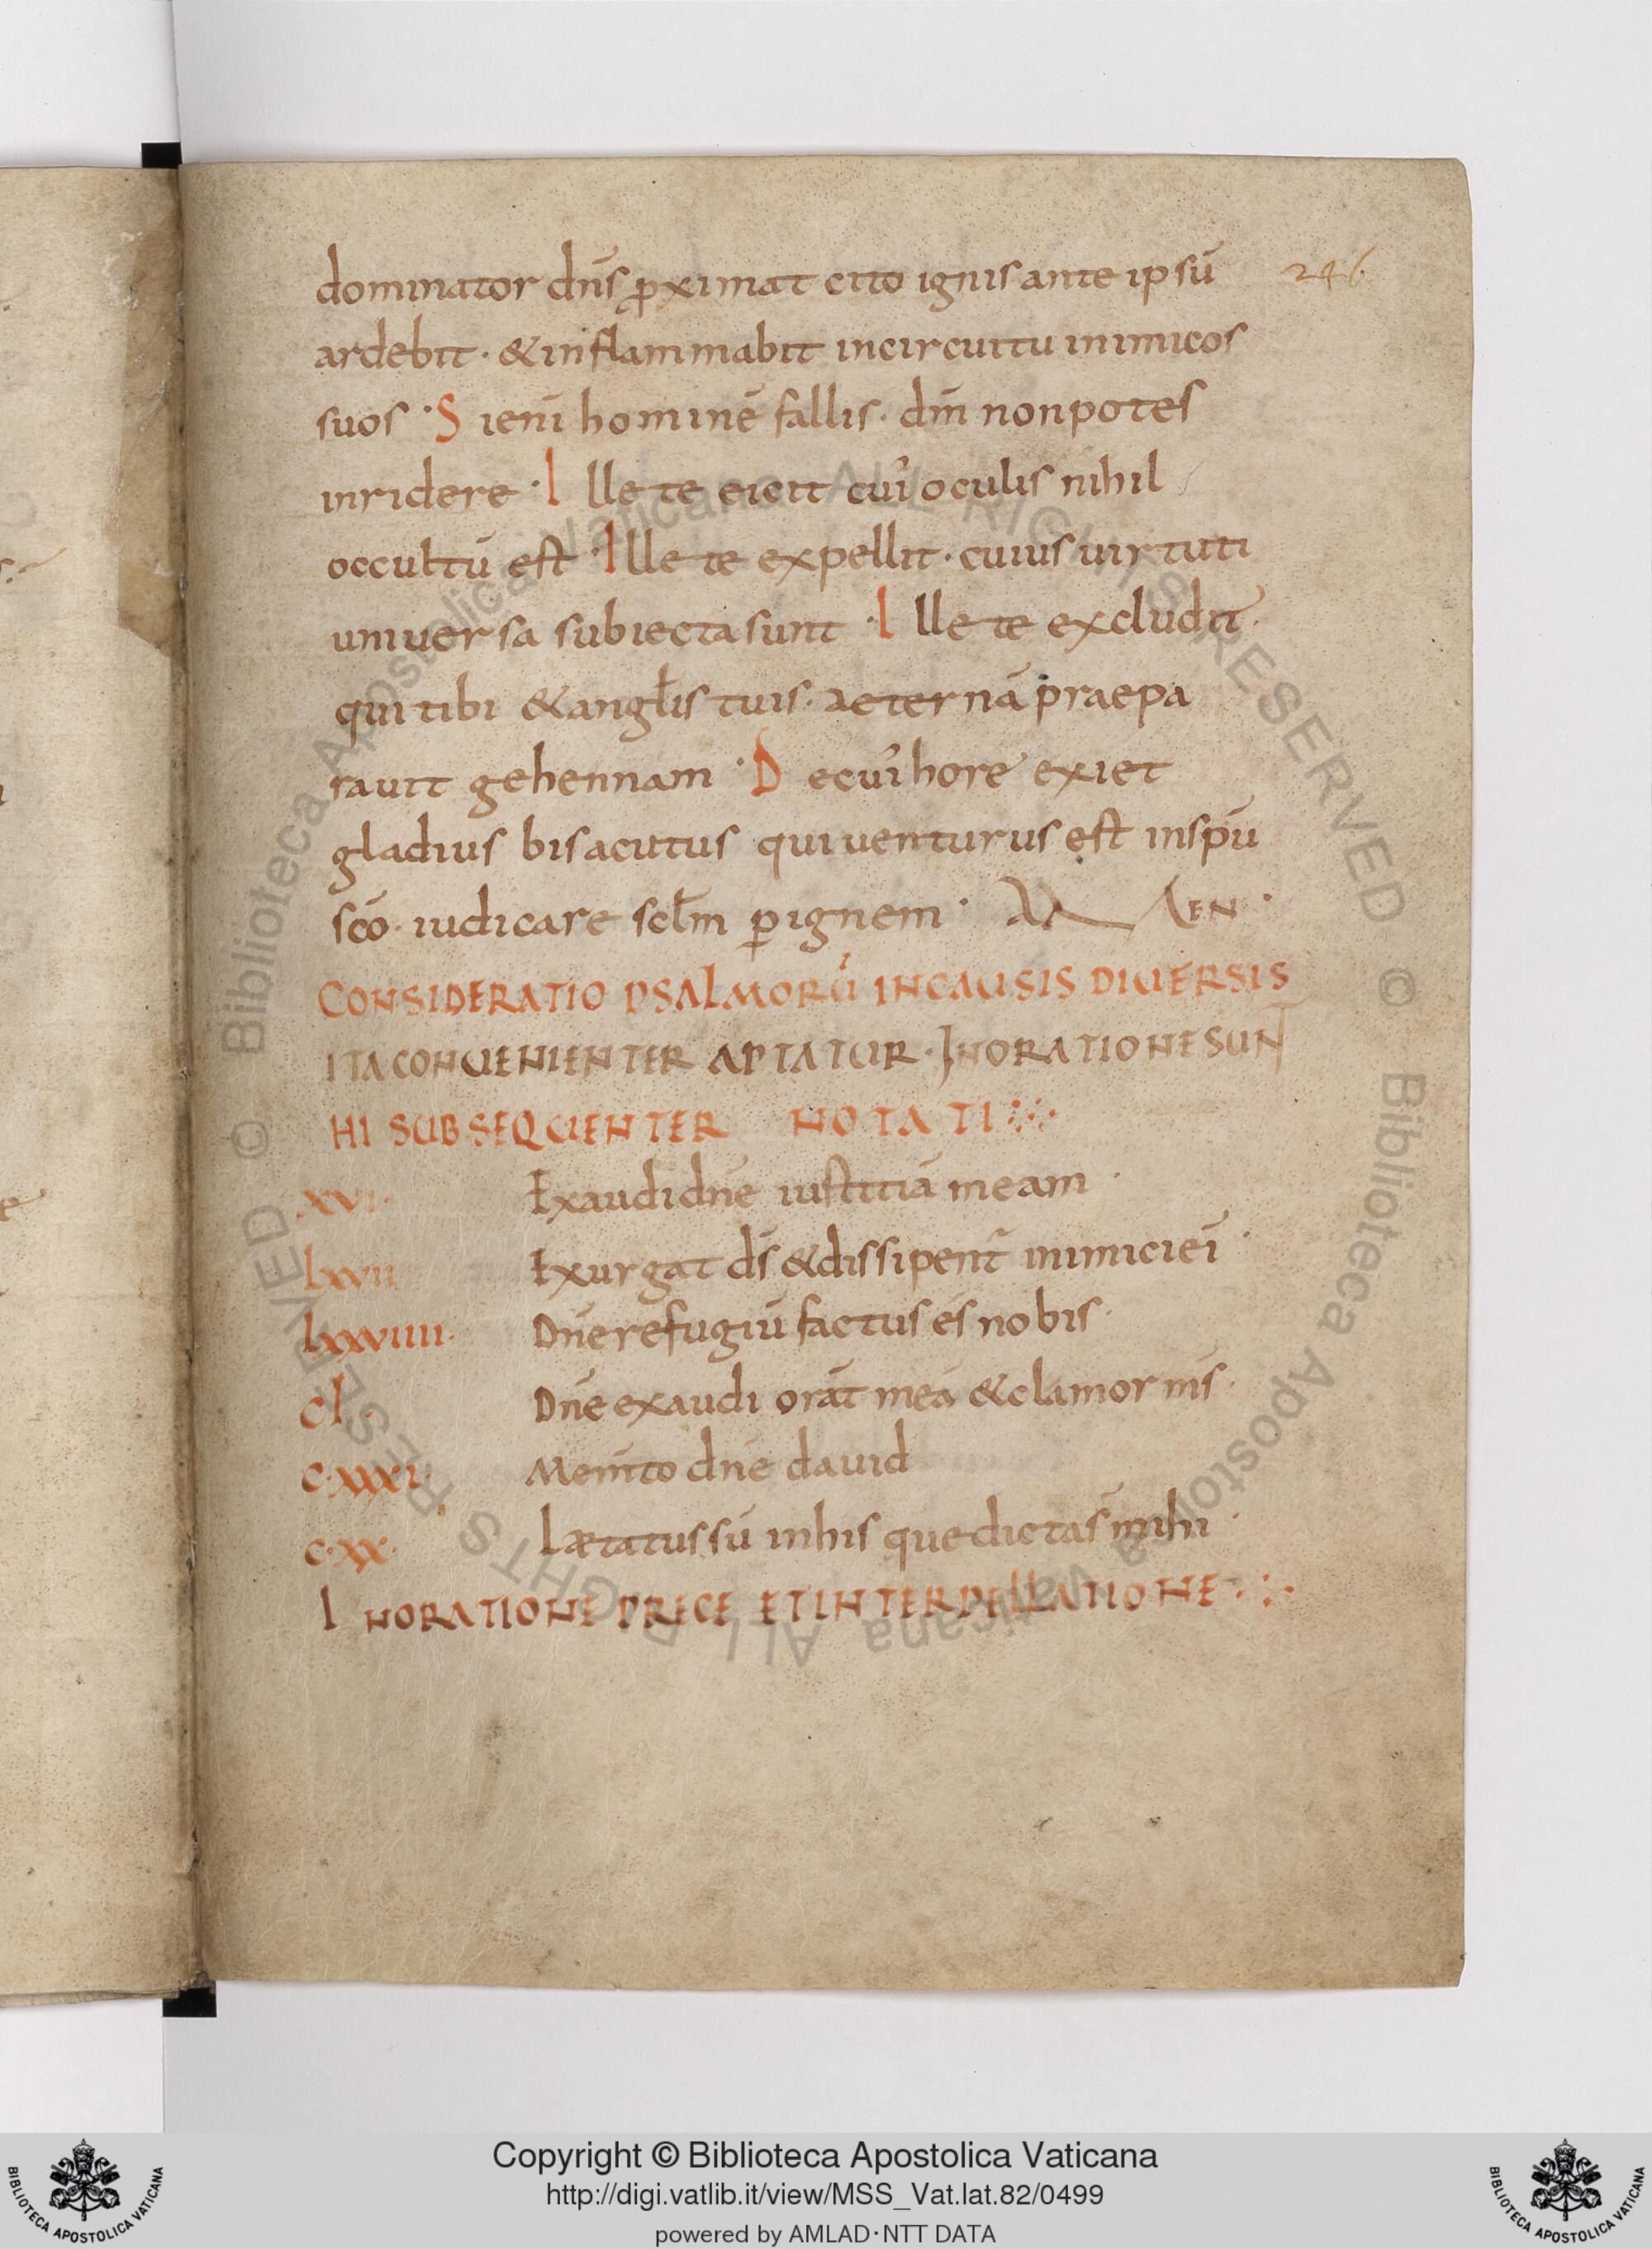 dominator dn̄s ꝓximat cito ignis ante ipsū
246.
ardebit · & inflammabit incircuitu inimicos
suos · S ienī hominē fallis · dm̄ non potes
inridere · I lle te eicit cuī oculis nihil
occultū est · Ille te expellit · cuius uirtuti
uniuersa subiecta sunt · I lle te excludit ·
qui tibi & angłis tuis · aeternā praepa
rauit gehennam · D ecuī hore exiet
gladius bis acutus qui uenturus est inspū
scō · iudicare scłm ꝑ ignem · AMEN ·
CONSIDERATIO PSALMORŪ INCAUSIS DIUERSIS
ITACONUENIENTER APTATUR · INORATIONE SUNT
HI SUBSEQUENTER NOTATI
xvi · Exaudi dn̄e iustitiā meam ·
lxvii Exurgat dś & dissipent̄ inimici eī ·
lxxxviiii · Dn̄e refugiū factus es nobis ·
cl · Dn̄e exaudi orāt meā & clamor m̄s ·
c·xxxi · Mem̄to dn̄e dauid
c·xx · Lætatus sū inhis que dicta s̄ mihi ·
I NORATIONE PRECE ET INTERPELLATIONE
Copyright © Biblioteca Apostolica Vaticana
http://digi.vatlib.it/view/MSS_Vat.lat.82/0499
powered by AMLAD·NTT DATA
BIBLIOTECA APOSTOLICA VATICANA
BIBLIOTECA APOSTOLICA VATICANA
© Biblioteca Apostolica Vaticana ALL RIGHTS RESERVED © Biblioteca Apostolica Vaticana ALL RIGHTS RESERVED